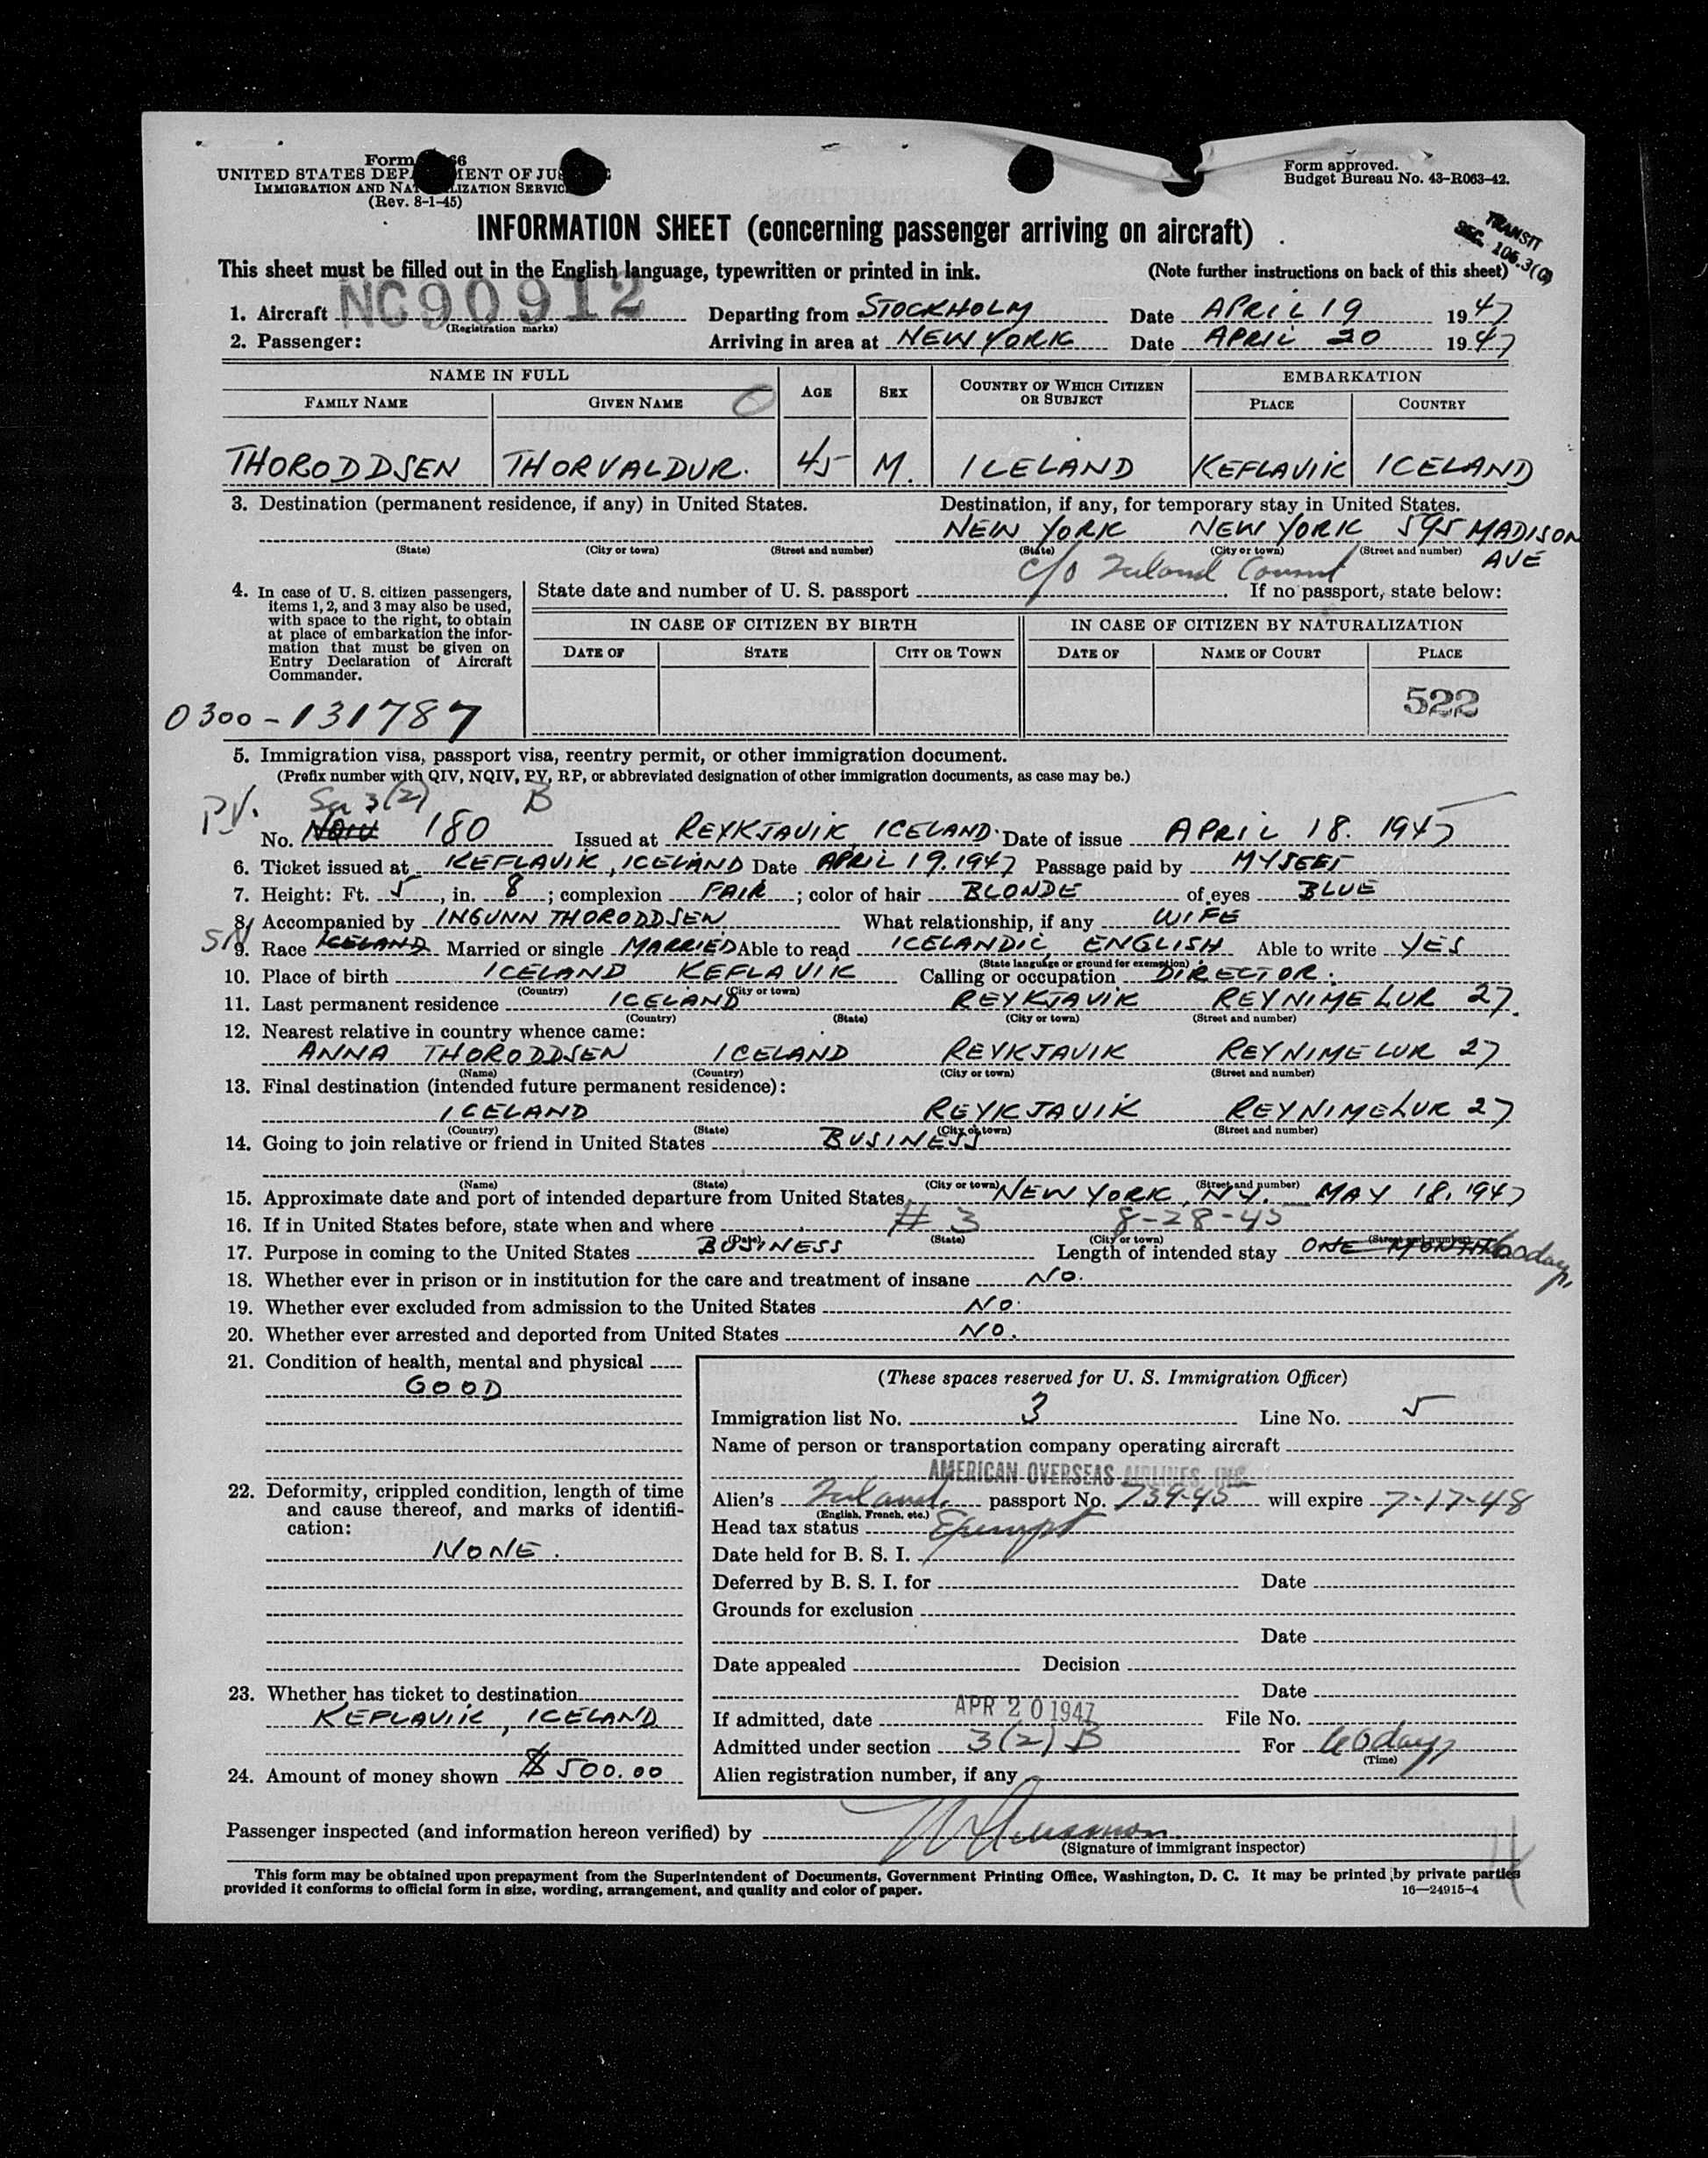 Form 66
UNITED STATES DEPA MENT OF JUS
IMMIGRATION AND NAT LIZATION SERVIC
(Rev. 8-1-45)
Form approved.
Budget Bureau No. 43-R063-42.
INFORMATION SHEET (concerning passenger arriving on aircraft)
TRANSIT
SEC. 105.3(c)
This sheet must be filled out in the English language, typewritten or printed in ink. (Note further instructions on back of this sheet)
1. Aircraft NC90912 Departing from STOCKHOLM Date APRIL 19 1947
(Registration marks)
2. Passenger: Arriving in area at NEW YORK Date APRIL 20 1947
NAME IN FULL AGE SEX COUNTRY OF WHICH CITIZEN OR SUBJECT EMBARKATION
FAMILY NAME GIVEN NAME PLACE COUNTRY
THORODDSEN THORVALDUR. 45 M. ICELAND KEFLAVIK ICELAND
3. Destination (permanent residence, if any) in United States. Destination, if any, for temporary stay in United States.
NEW YORK NEW YORK 595 MADISON AVE
(State) (City or town) (Street and number) (State) (City or town) (Street and number)
c/o Iceland Consul
4. In case of U. S. citizen passengers,
items 1, 2, and 3 may also be used,
with space to the right, to obtain
at place of embarkation the infor-
mation that must be given on
Entry Declaration of Aircraft
Commander.
State date and number of U. S. passport If no passport, state below:
IN CASE OF CITIZEN BY BIRTH IN CASE OF CITIZEN BY NATURALIZATION
DATE OF STATE CITY OR TOWN DATE OF NAME OF COURT PLACE
522
0300-131787
5. Immigration visa, passport visa, reentry permit, or other immigration document.
(Prefix number with QIV, NQIV, PV, RP, or abbreviated designation of other immigration documents, as case may be.)
PV. Sec 3(2) B
No. NQIV 180 Issued at REYKJAVIK, ICELAND. Date of issue APRIL 18. 1947
6. Ticket issued at KEFLAVIK, ICELAND Date APRIL 19.1947 Passage paid by MYSELF
7. Height: Ft. 5, in. 8; complexion FAIR; color of hair BLONDE of eyes BLUE
8. Accompanied by INGUNN THORODDSEN What relationship, if any WIFE
SN
9. Race ICELAND Married or single MARRIED Able to read ICELANDIC, ENGLISH Able to write YES
(State language or ground for exemption)
10. Place of birth ICELAND KEFLAVIK Calling or occupation DIRECTOR.
(Country) (City or town)
11. Last permanent residence ICELAND REYKJAVIK REYNIMELUR 27.
(Country) (State) (City or town) (Street and number)
12. Nearest relative in country whence came:
ANNA THORODDSEN ICELAND REYKJAVIK REYNIMELUR 27
(Name) (Country) (City or town) (Street and number)
13. Final destination (intended future permanent residence):
ICELAND REYKJAVIK REYNIMELUR 27
(Country) (State) (City or town) (Street and number)
14. Going to join relative or friend in United States BUSINESS
(Name) (State) (City or town) (Street and number)
15. Approximate date and port of intended departure from United States NEW YORK, NY. MAY 18, 1947
16. If in United States before, state when and where # 3 8-28-45
(Date) (State) (City or town) (Street and number)
17. Purpose in coming to the United States BUSINESS Length of intended stay ONE MONTH 60 days
18. Whether ever in prison or in institution for the care and treatment of insane NO.
19. Whether ever excluded from admission to the United States NO.
20. Whether ever arrested and deported from United States NO.
21. Condition of health, mental and physical
GOOD
22. Deformity, crippled condition, length of time
and cause thereof, and marks of identifi-
cation:
NONE.
23. Whether has ticket to destination
KEFLAVIK, ICELAND
24. Amount of money shown $500.00
(These spaces reserved for U. S. Immigration Officer)
Immigration list No. 3 Line No. 5
Name of person or transportation company operating aircraft
AMERICAN OVERSEAS AIRLINES, INC.
Alien's Iceland passport No. 739-45 will expire 7-17-48
(English, French, etc.)
Head tax status Exempt
Date held for B. S. I.
Deferred by B. S. I. for Date
Grounds for exclusion
Date
Date appealed Decision
Date
If admitted, date APR 20 1947 File No.
Admitted under section 3(2) B For 60 days
(Time)
Alien registration number, if any
Passenger inspected (and information hereon verified) by
(Signature of immigrant inspector)
This form may be obtained upon prepayment from the Superintendent of Documents, Government Printing Office, Washington, D. C. It may be printed by private parties
provided it conforms to official form in size, wording, arrangement, and quality and color of paper. 16—24915-4